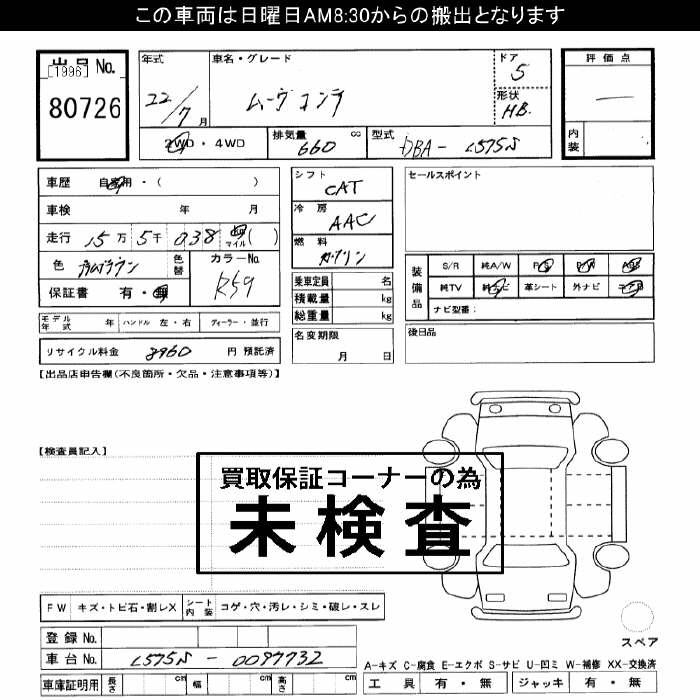 この車両は日曜日AM8:30からの搬出となります
出品 No.
[1996]
80726
年式 22/7月
車名・グレード ムーヴ コンテ
ドア 5
形状 H.B.
評価点 —
内装
2WD・4WD
排気量 660 cc
型式 DBA-L575S
車歴 自家用・( )
車検 年 月
走行 15万 5千 038 マイル( )
色
色替
カラーNo. R59
保証書 有・無
シフト CAT
冷房 AAC
燃料 ガソリン
乗車定員 名
積載量 kg
総重量 kg
セールスポイント
装備品
S/R 純A/W P/S P/W A/B
純TV 純ナビ 革シート 外ナビ
ナビ型番:
モデル年式 年 ハンドル 左・右 ディーラー・並行
名変期限 月 日
後日品
リサイクル料金 8960 円 預託済
【出品店申告欄(不良箇所・欠品・注意事項等)】
【検査員記入】
買取保証コーナーの為
未検査
FW キズ・トビ石・割レX シート内装 コゲ・穴・汚レ・シミ・破レ・スレ
登録 No.
車台 No. L575S-0097732
スペア
A-キズ C-腐食 E-エクボ S-サビ U-凹ミ W-補修 XX-交換済
車庫証明用 長さ cm 幅 cm 高さ cm
工具 有・無 ジャッキ 有・無